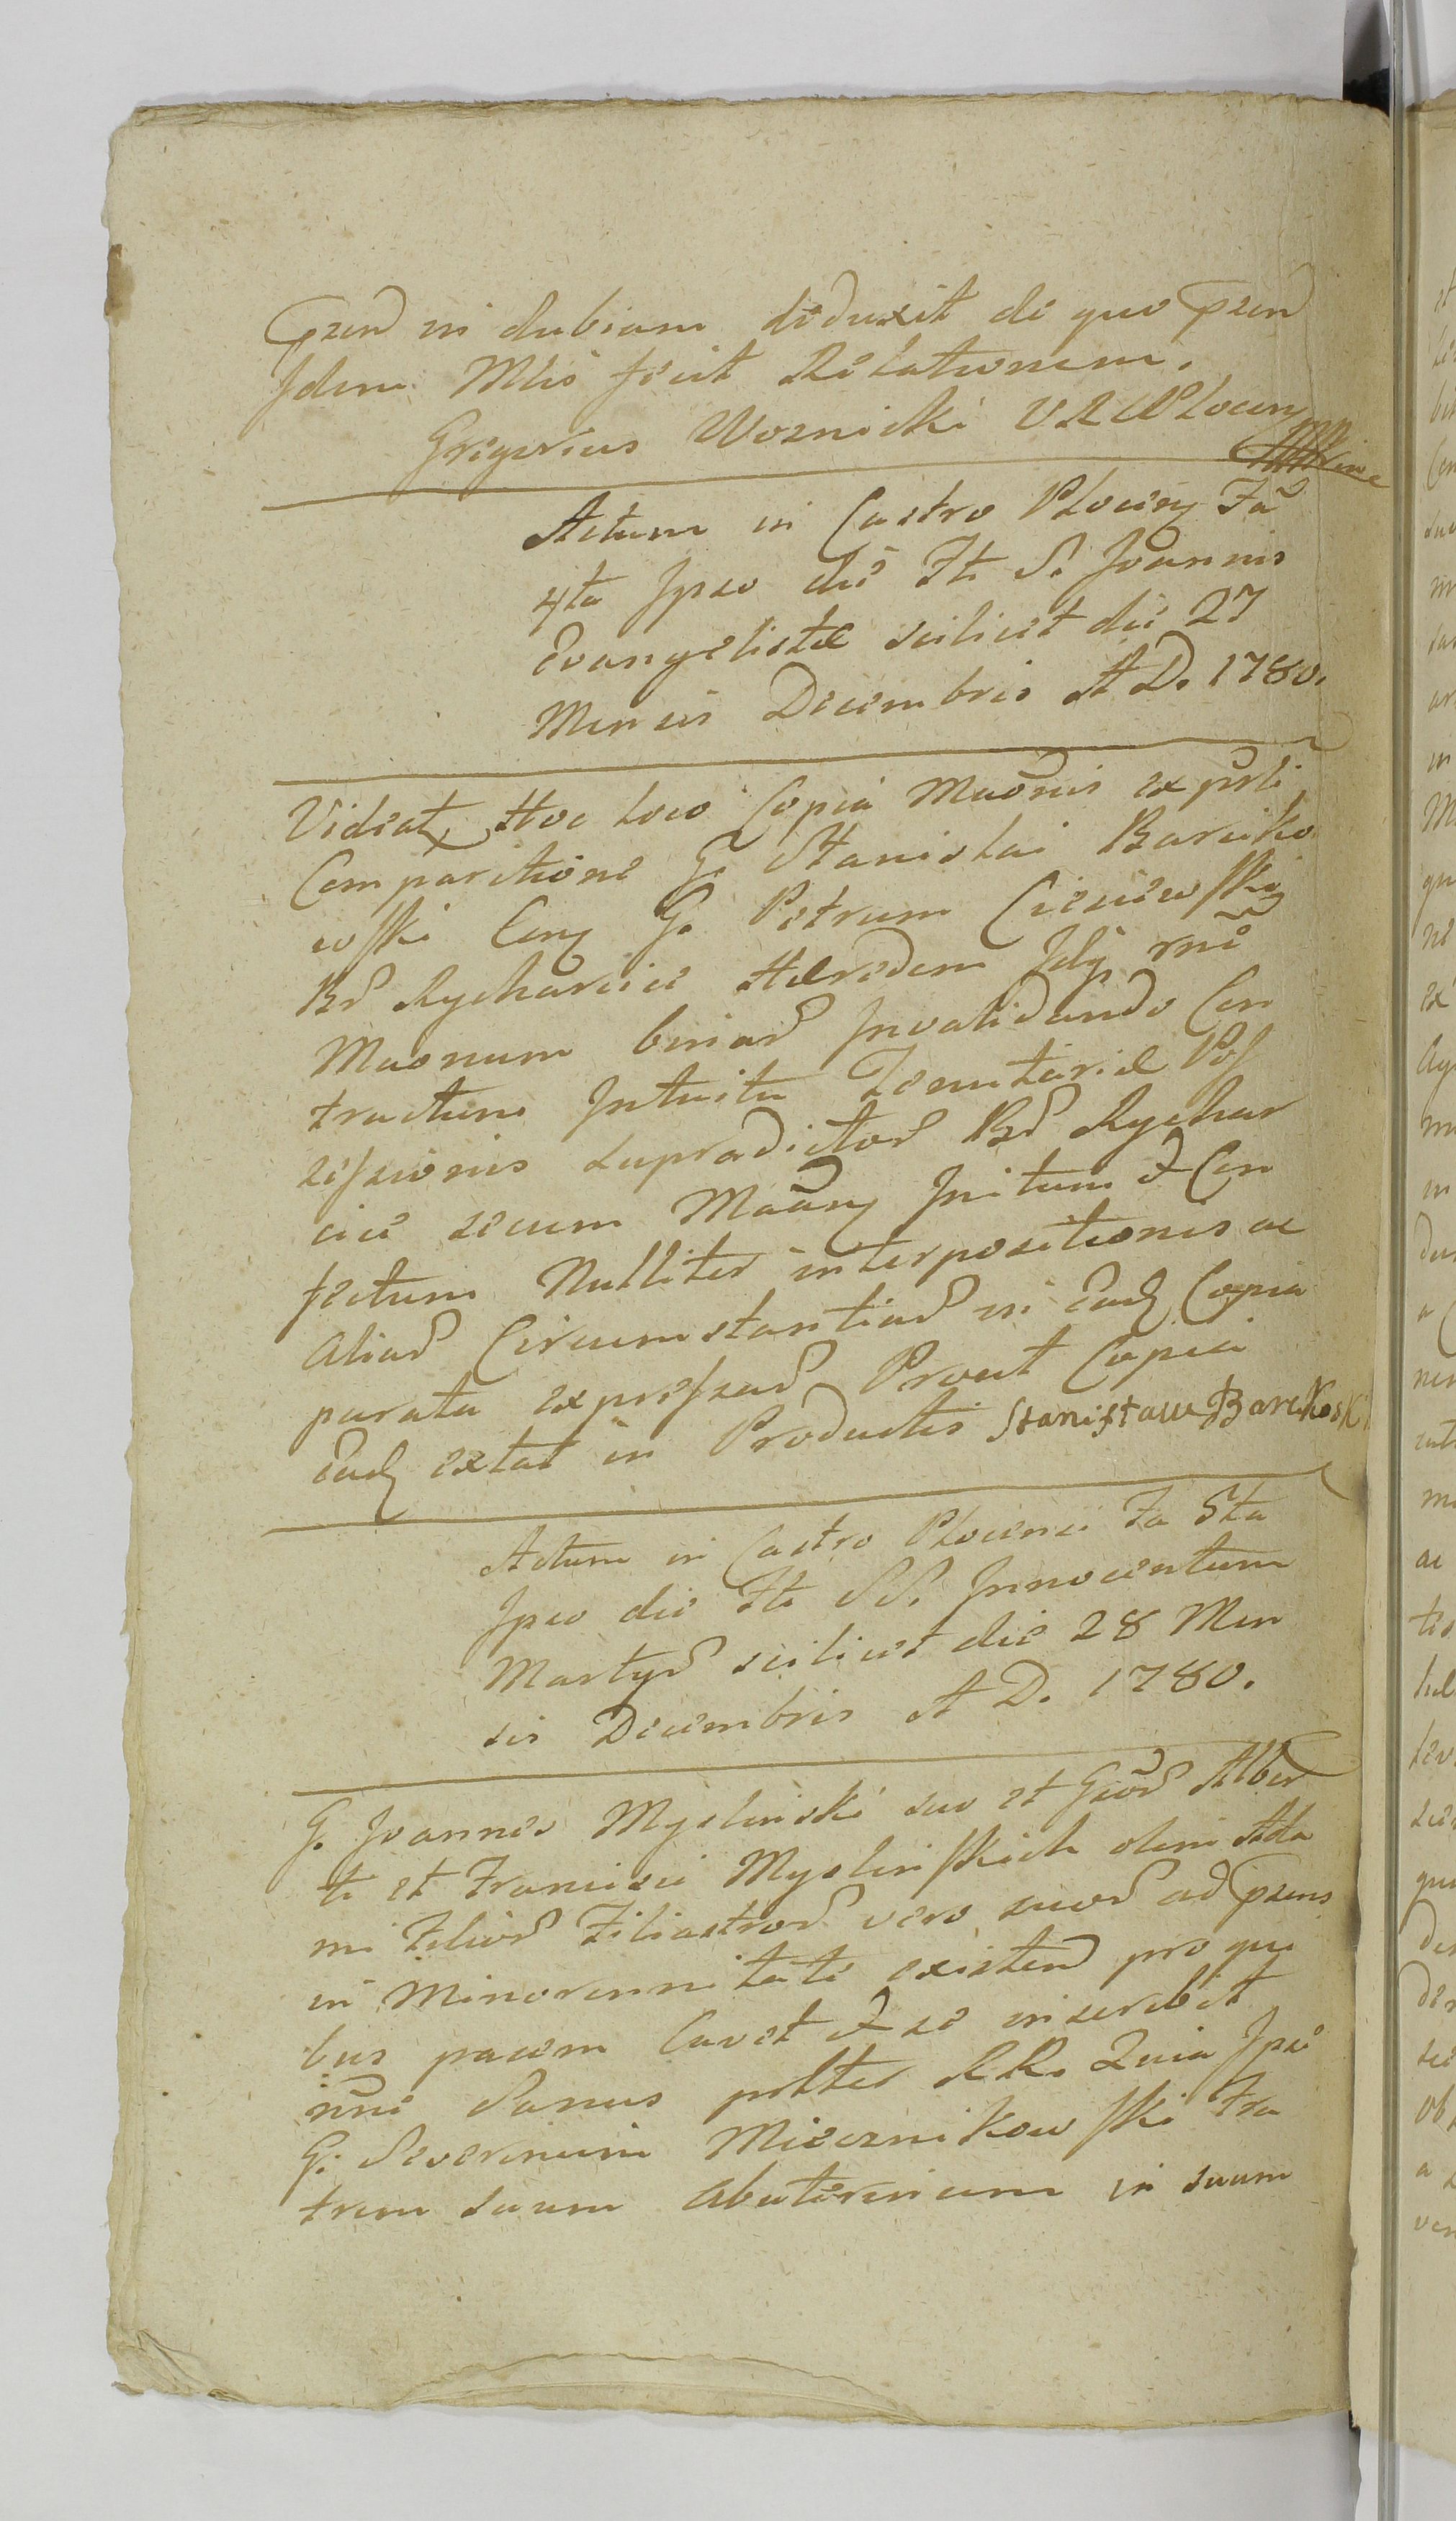 Pzend in dubiam diduxit de quo Pzend
Idem Mlis fecit Relationem.
Gregorius Woznicki V R C Plocen
Actum in Castro Plocen Fa
4ta Ipso die Fti S. Joannis
Evangelistæ scilicet die 27
Mensis Decembris A D. 1780.
Videat Hoc loco Copia Maonis ex
Comparitione G. Stanislai Barciko
wski Con G. Petrum Cieciewski
Br Rycharcice Hæredem
Maonum bonar Invalidando Con
tractum Intuitu Tenutariæ Pos
sessionis supradictor Br Rychar
cice secum Maan Initum & Con
fectum Nulliter interpositionis ac
aliar Circumstantiar in ead Copia
parata expressar Prout Copia
Ead extat in Productis Stanisław Barcikoski
Actum in Castro Plocensi Fa 5ta
Ipso die Fti SS. Innocentum
Martyr scilicet die 28 Men
sis Decembris A D. 1780.
G. Joannes Myslinski suo et Gnor Alber
ti et Francisci Myslinskich olim Ada
mi Filior Filiastror vero suor ad pzens
in Minorennitate existen pro qui
bus pacem Cavet & se inscribit
Sanus R R. Quia Ipse
G. Severinum Miecznikowski Fra
trem suum abuterinum in suum